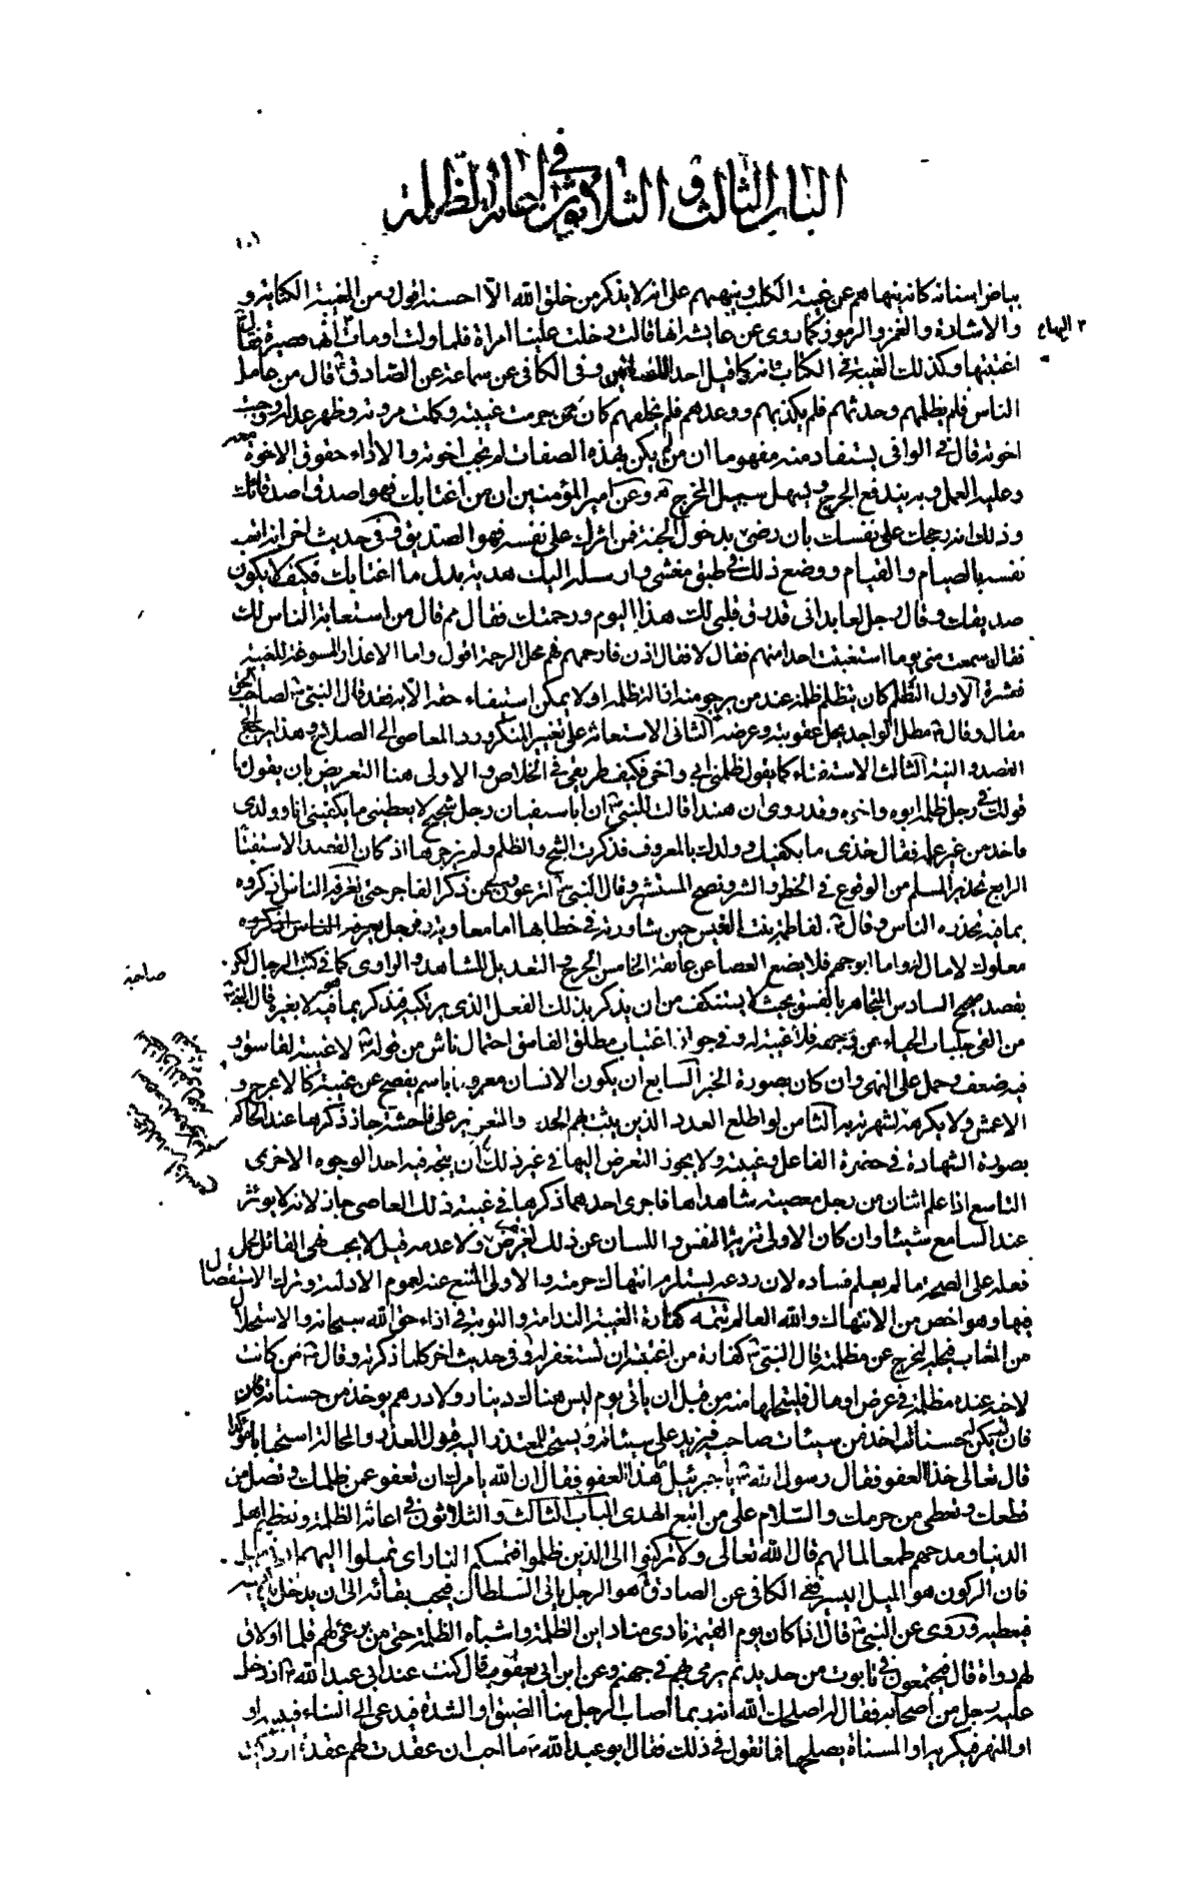 الباب الثالث و الثلاثون في اعانة الظلمة
١٠١
بياض اسنانه كانه ينهاهم عن غيبة الكلب و ينبههم على انه لا يذكر من خلق الله الا احسنه اقول و من الغيبة الكتابة و
٣ الايماء
و الاشارة و الغمز و الرموز كما روى عن عايشه انها قالت دخلت علينا امراة فلما ولت اومات انها قصيرة فقال
اغتبتها و كذلك الغيبة في الكتاب فانه كما قيل احد اللسانين و في الكافي عن سماعة عن الصادق قال من عامل
الناس فلم يظلمهم و حدثهم فلم يكذبهم و وعدهم فلم يخلفهم كان ممن حرمت غيبته و كملت مروته و ظهر عدله و وجبت
اخوته قال في الوافي يستفاد منه مفهوما ان من لم يكن بهذه الصفات لم تجب اخوته و الا اداء حقوق الاخوة معه
و عليه العمل و به يندفع الحرج و يسهل سبيل المخرج و عن امير المؤمنين ان من اغتابك فهو اصدق اصدقائك
و ذلك انه رجحك على نفسك بان رضى بدخول الجنة فمن اثرك على نفسه فهو الصديق و في حديث اخر انه اتعب
نفسه بالصيام و القيام و وضع ذلك في طبق مغشى و ارسله اليك هدية بدل ما اغتابك فكيف لا يكون
صديقك و قال رجل لعابد اني قد رق قلبي لك هذا اليوم و رحمتك فقال مم قال من استعابة الناس لك
فقال سمعت مني يوما استغبت احدا منهم فقال لا فقال اذن فارحمهم فهم محل الرحمة اقول و اما الاعذار المسوغة للغيبة
فعشرة الاول التظلم كان يتظلم ظلمة عند من يرجو منه ازالة ظلمه او لا يمكن استيفاء حقه الا به فقد قال النبي لصاحب الحق
مقال و قال مطل الواجد يحل عقوبته و عرضه الثاني الاستعانة على تغيير المنكر و رد المعاصي الى الصلاح و هذا يرجع الى
القصد و النية الثالث الاستفتاء كما يقول ظلمني ابي و اخي فكيف طريقي في الخلاص و الاولى هنا التعريض بان يقول ما
قولك في رجل ظلمه ابوه و اخوه و قد روى ان هندا قالت للنبي ان ابا سفيان رجل شحيح لا يعطيني ما يكفيني انا و ولدي
فاخذ من غير علمه فقال خذي ما يكفيك و ولدك بالمعروف فذكرت الشح و الظلم و لم يزجرها اذ كان القصد الاستفتا
الرابع تحذير المسلم من الوقوع في الخطر و الشر و نصح المستشر و قال النبي اترعون عن ذكر الفاجر حتى يعرفه الناس اذكروه
بما فيه يحذره الناس و قال لفاطمة بنت القيس حين شاورته في خطابها اما معاوية فرجل
معلوك لا مال له و اما ابو جهم فلا يضع العصا عن عاتقه الخامس الجرح و التعديل للشاهد و الراوي كما في كتب الرجال لكن
صاحبه
بقصد صحيح السادس التجاهر بالفسق بحيث لا يستنكف من ان يذكر بذلك الفعل الذي يرتكبه فيذكر بما فيه لا بغيره قال النبي
من القى جلباب الحياء عن وجهه فلا غيبة له و في جواز اغتياب مطلق الفاسق احتمال ناش من قوله لا غيبة لفاسق و
فيه ضعف و حمل على النهي و ان كان بصورة الخبر السابع ان يكون الانسان معروفا باسم يفصح عن غيبته كالاعرج و
الاعمش و لا يكرهه لشهرته به الثامن لو اطلع العدد الذين يثبت بهم الحد و التعزير على فاحشة جاز ذكرها عند الحاكم
بصورة الشهادة في حضرة الفاعل و غيبته و لا يجوز التعرض اليها في غير ذلك الا ان يتجه فيه احد الوجوه الاخرى
التاسع اذا علم اثنان من رجل معصية شاهداها فاجرى احدهما ذكرها في غيبة ذلك العاصي جاز لانه لا يوثر
عند السامع شيئا و ان كان الاولى تنزيه النفس و اللسان عن ذلك لغرض و لا عدمه قيل لا يجب نهي القائل لحمل
فعله على الصحة ما لم يعلم فساده لان ردعه يستلزم انتهاك حرمته و الاولى المنع عنه لعموم الادلة و ترك الاستفصال
فيها و هو اخص من الانتهاك و الله العالم تتمه كفارة الغيبة الندامة و التوبة في اداء حق الله سبحانه و الاستحلال
من المغتاب فيحله ليخرج عن مظلمته قال النبي كفارة من اغتبته ان تستغفر له و في حديث اخر كلما ذكرته و قال من كانت
لاخيه عنده مظلمة في عرض او مال فليتحللها منه من قبل ان ياتي يوم ليس هناك دينار و لا درهم يوخذ من حسناته
فان لم يكن له حسنات اخذ من سيئات صاحبه فيزيد على سيئاته و يستحب للمعتذر اليه قبول العذر و المحالة استحبابا مؤكدا
قال تعالى خذ العفو فقال رسول الله يا جبرئيل ما هذا العفو فقال ان الله يامرك ان تعفو عمن ظلمك و تصل من
قطعك و تعطي من حرمك و السلام على من اتبع الهدى الباب الثالث و الثلاثون في اعانة الظلمة و تعظيم اهل
الدنيا و مدحهم طمعا لمالهم قال الله تعالى و لا تركنوا الى الذين ظلموا فتمسكم النار اى تميلوا اليهم ادنى ميل
فان الركون هو الميل اليسر ففي الكافي عن الصادق هو الرجل ياتي السلطان فيحب بقائه الى ان يدخل يده
فيعطيه و روى عن النبي قال اذا كان يوم القيمة نادى مناد اين الظلمة و اشباه الظلمة حتى من برى لهم قلما او لاق
لهم دواة قال فيجتمعون في تابوت من حديد ثم يرمى بهم في جهنم و عن ابن ابي يعفور قال كنت عند ابي عبد الله اذ دخل
عليه رجل من اصحابه فقال له اصلحك الله انه ربما اصاب الرجل منا الضيق او الشدة فيدعى الى البناء فيبنيه او
او النهر فيكريه او المسناة يصلحها فما تقول في ذلك فقال ابو عبد الله ما احب ان عقدت لهم عقدة او وكيت